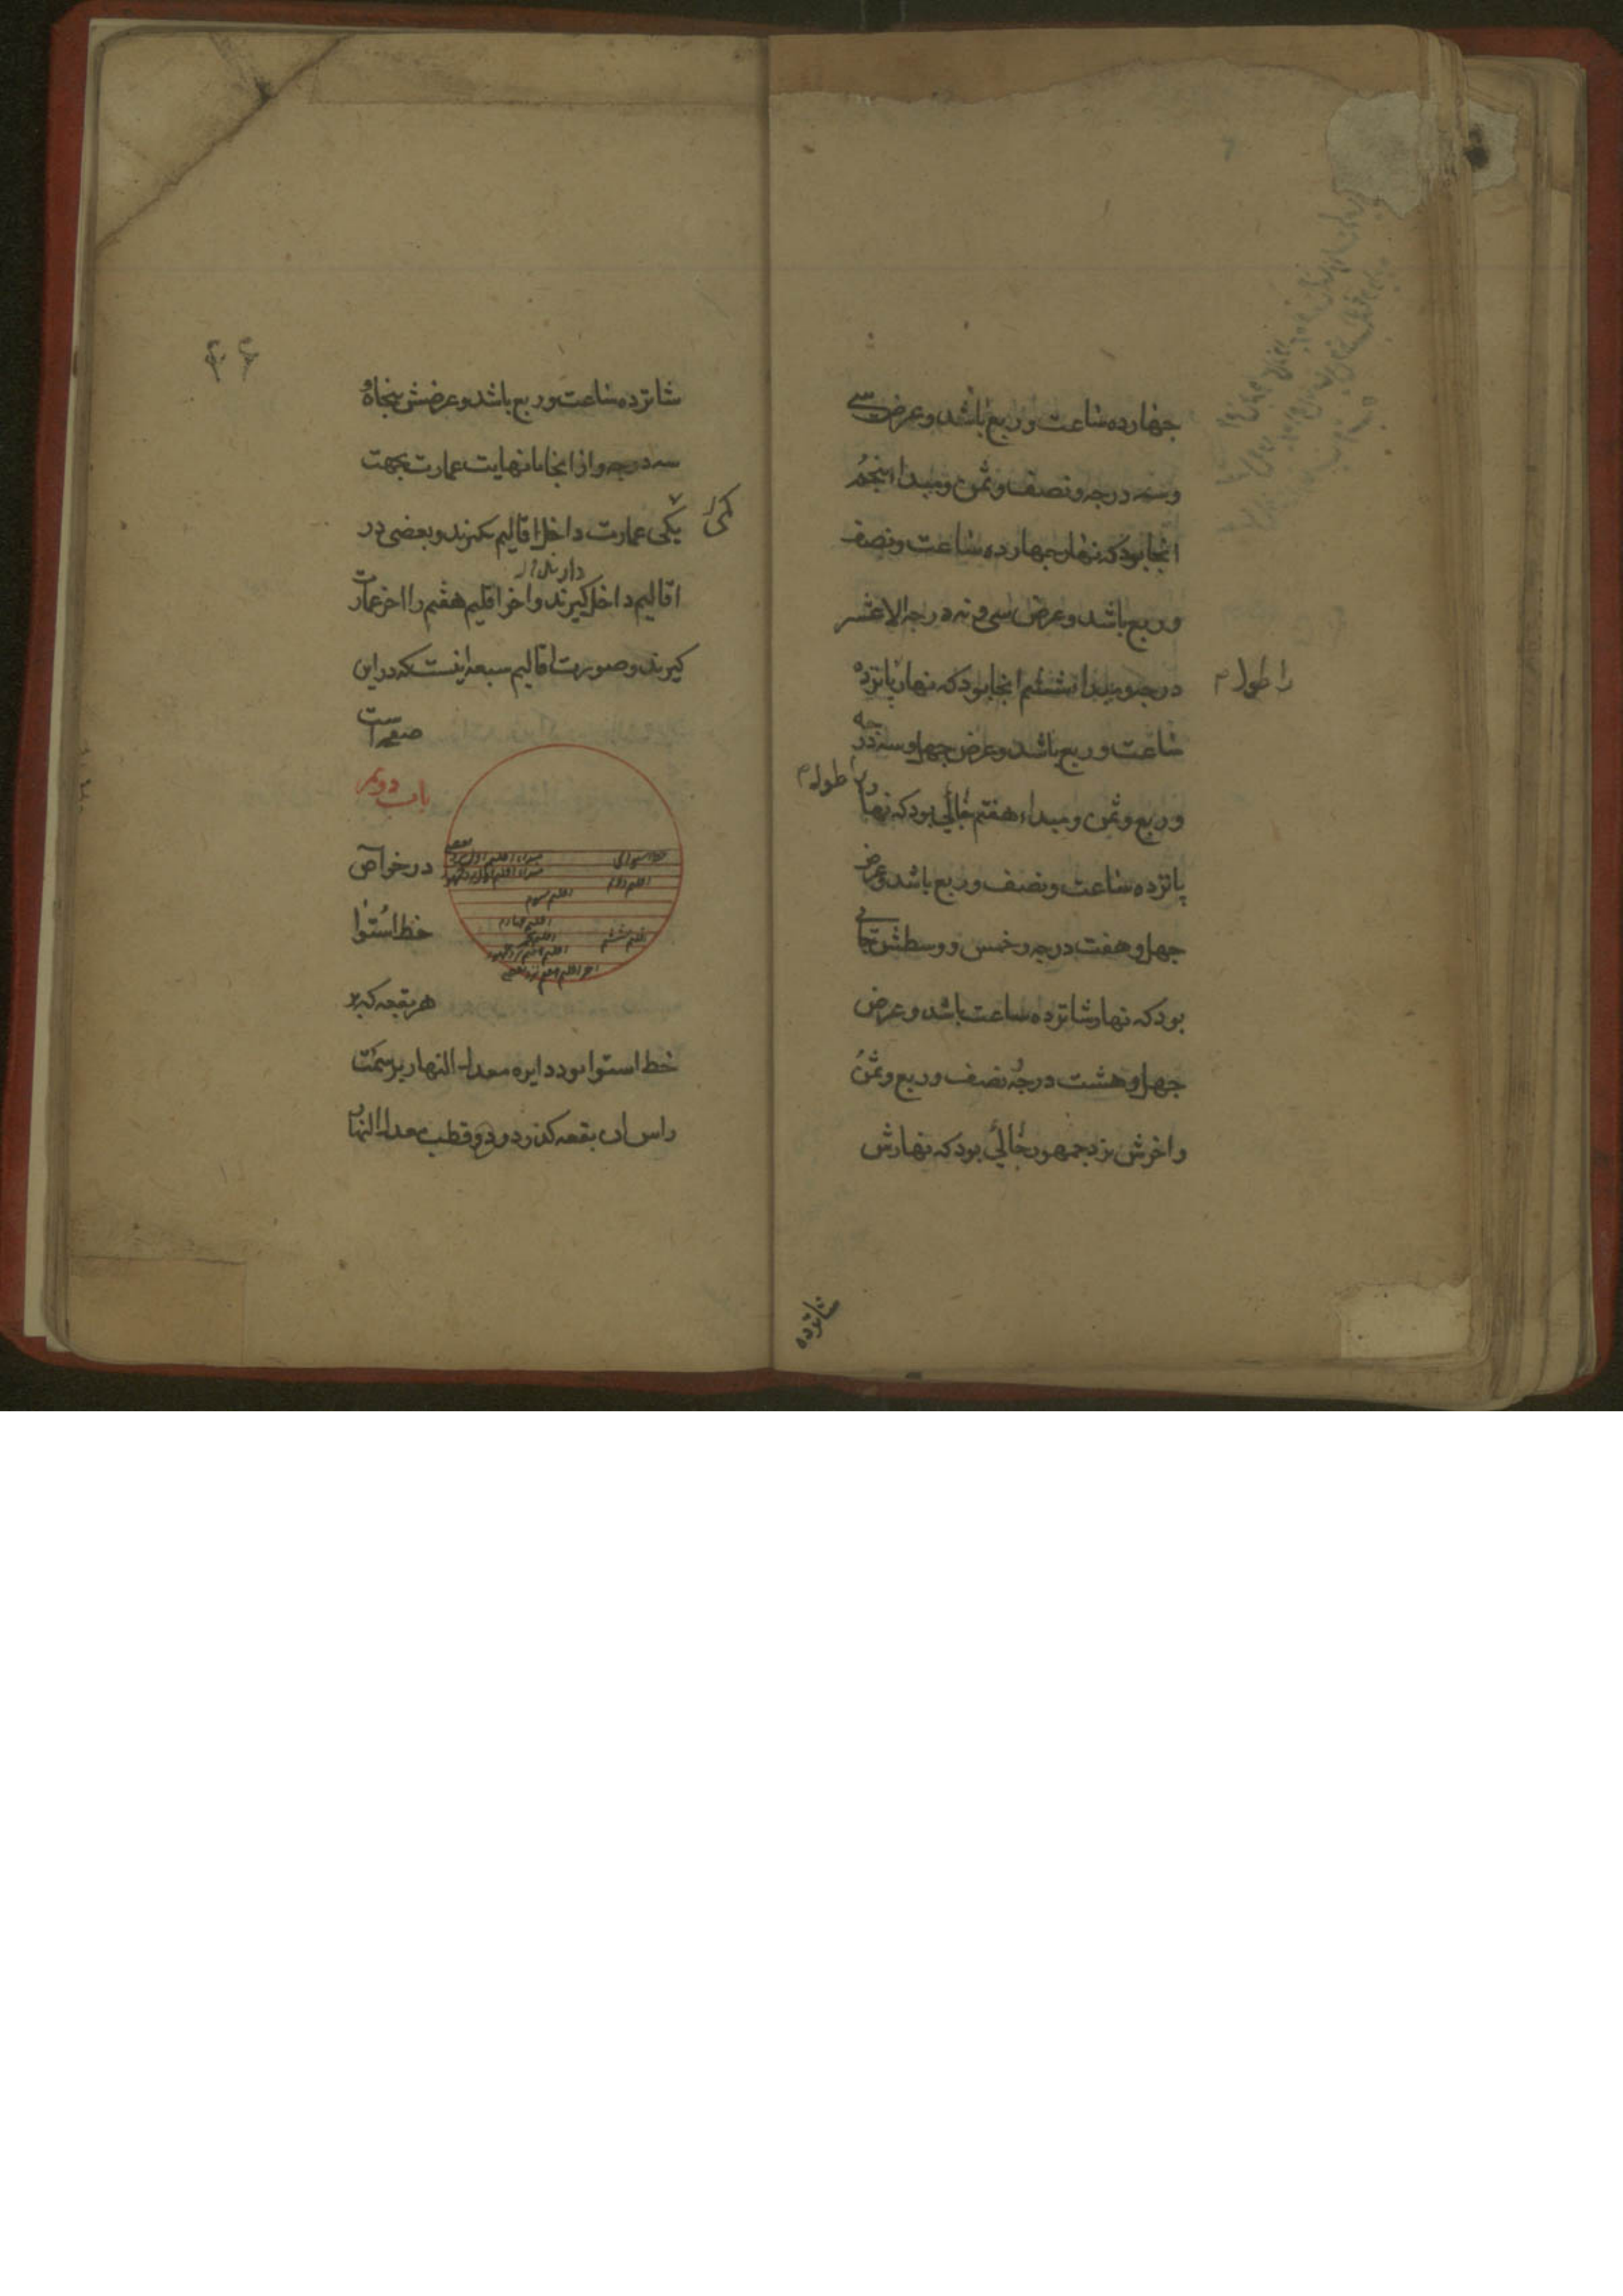 جهارده ساعت و ربع باشد و عرض سی
و سه درجه و نصف و ثمن و مبداء پنجم
انجا بود که نهار جهارده ساعت و نصف
و ربع باشد و عرض سی و نه درجه الا عشر
درجه و مبداء ششم انجا بود که نهار پانزده
را طول م
ساعت و ربع باشد و عرض جهل و سه درجه
و ربع و ثمن و مبداء هفتم جائی بود که نهار
را طول م
پانزده ساعت و نصف و ربع باشد و عرض
جهل و هفت درجه و خمس و وسطش جائی
بود که نهار شانزده ساعت باشد و عرض
جهل و هشت درجه و نصف و ربع و ثمن
و اخرش نزد جمهور جائی بود که نهارش
شانزده
شانزده ساعت و ربع باشد و عرضش پنجاه و
سه درجه و از انجا تا نهایت عمارت بجهت
کمی
یکی عمارت داخل اقالیم نکیرند و بعضی در
دارند
اقالیم داخل کیرند و اخر اقلیم هفتم را اخر عمارت
کیرند و صورت اقالیم سبعه اینست که در این
صفحه است
باب دویم
در خواص
خط استوا
هر بقعه که بر
خط استوا
اقلیم دوم
اقلیم سوم
اقلیم چهارم
اقلیم پنجم
اقلیم ششم
خط استوا بود دایره معدل النهار بر سمت
راس ان بقعه کذرد و دو قطب معدل النهار